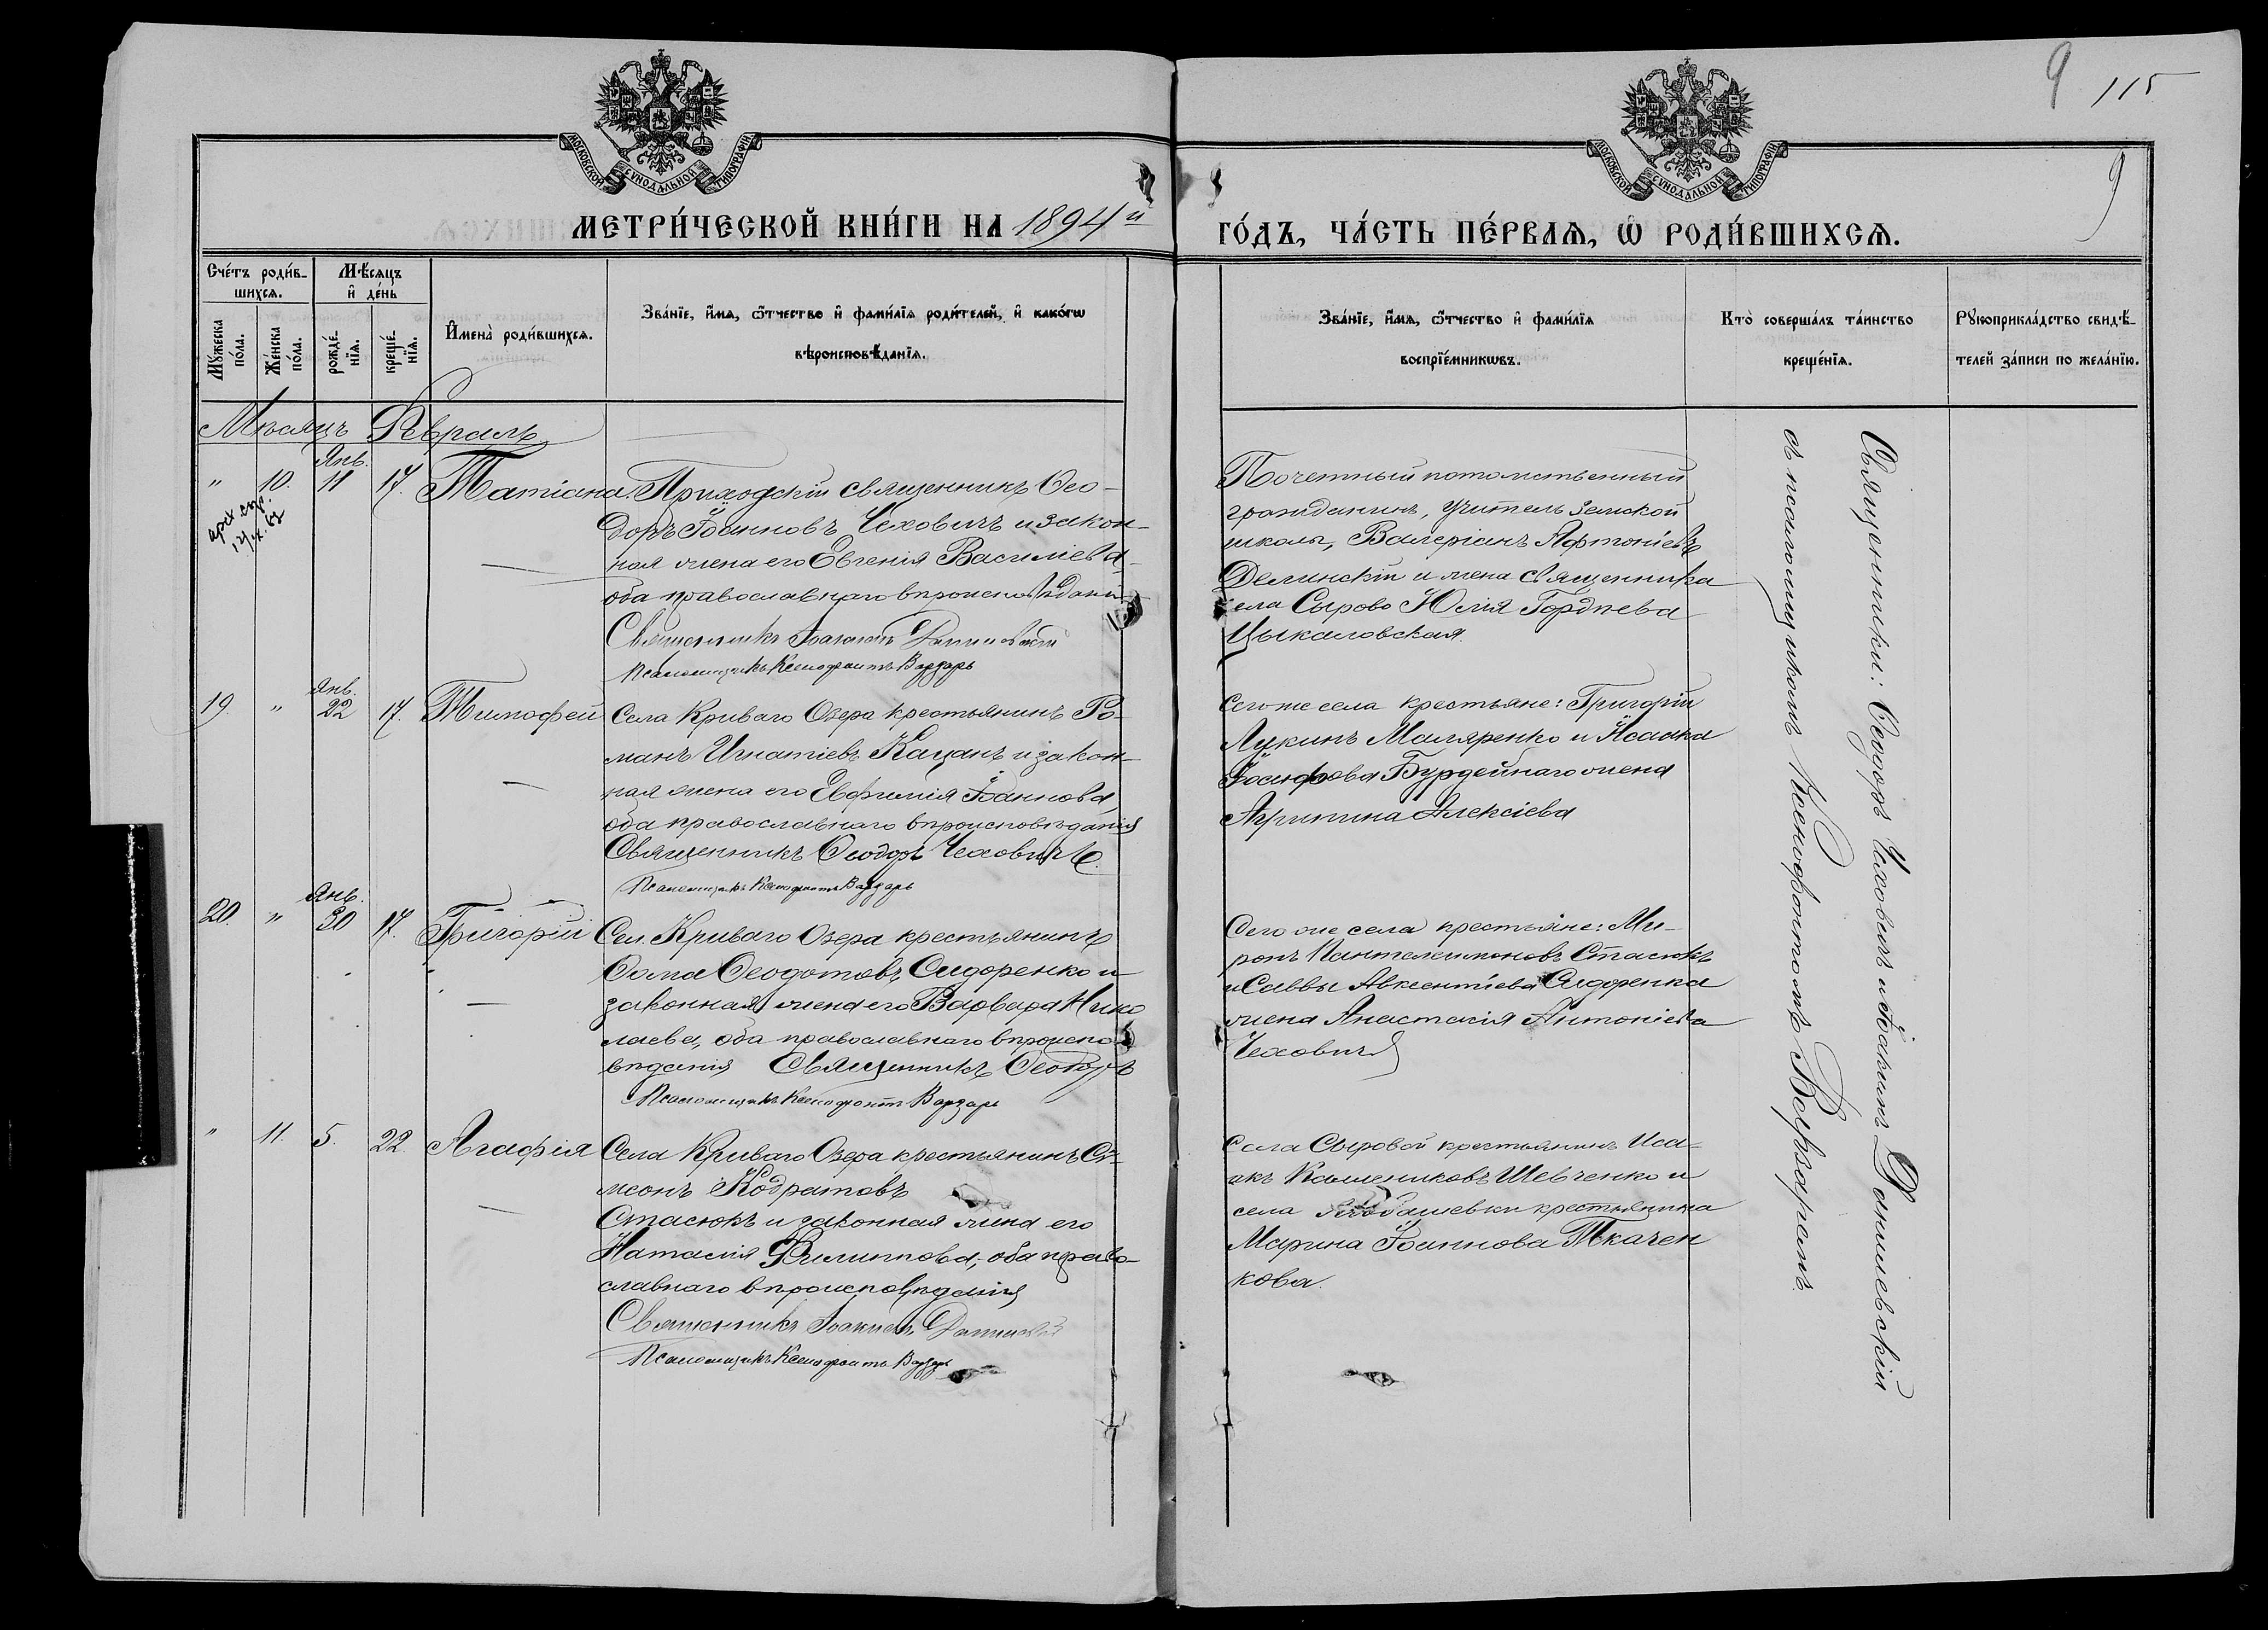 9 115
9
МОСКОВСКОЙ СѴНОДАЛЬНОЙ ТИПОГРАФІИ
МОСКОВСКОЙ СѴНОДАЛЬНОЙ ТИПОГРАФІИ
МЕТРИ́ЧЕСКОЙ КНИ́ГИ НА 1894й
ГО́ДЪ, ЧА́СТЬ ПЕ́РВАѦ, Ѡ РОДИ́ВШИХСѦ.
Сче́тъ роди́в-
шихсѧ.
Мꙋ́жеска
по́ла.
Же́нска
по́ла.
Мѣ́сѧцъ
и҆ де́нь
рожде́-
нїѧ.
креще́-
нїѧ.
И҆мена̀ роди́вшихсѧ.
Зва́нїе, и҆́мѧ, ѻ҆́тчество и҆ фами́лїѧ роди́телей, и҆ како́гѡ
вѣроисповѣ́данїѧ.
Зва́нїе, и҆́мѧ, ѻ҆́тчество и҆ фами́лїѧ
воспрїе́мникѡвъ.
Кто̀ соверша́лъ та́инство
креще́нїѧ.
Рꙋкоприкла́дство свидѣ́-
телей за́писи по жела́нїю.
Мѣсяцъ Февраль
" 10. Янв. 11 17. Татіана
Приходскій священникъ Ѳео-
доръ Іоанновъ Чеховичъ и закон-
ная жена его Евгенія Василіева
оба православнаго вѣроисповѣданія
Священникъ Іоакимъ Данилевскій
Псаломщикъ Ксенофонтъ Варзарь
Почетный потомственный
гражданинъ, учитель земской
школы, Валеріанъ Афтоніевъ
Делинскій и жена священника
села Сырово Юлія Гордѣева
Цыкаловская.
19. " Янв. 22 17. Тимофей
Села Криваго Озера крестьянинъ Ро-
манъ Игнатіевъ Кацанъ и закон-
ная жена его Евфимія Іоаннова,
оба православнаго вѣроисповѣданія
Священникъ Ѳеодоръ Чеховичъ.
Псаломщикъ Ксенофонтъ Варзарь
Сего же села крестьяне: Григорій
Лукинъ Маляренко и Исаака
Іосифова Бурдейнаго жена
Агрипина Алексіева
20. " Янв. 30 17. Григорій
Сел. Криваго Озера крестьянинъ
Ѳома Ѳеодотовъ Сидоренко и
законная жена его Варвара Нико
лаева, оба православнаго вѣроиспо-
вѣданія Священникъ Ѳеодоръ
Псаломщикъ Ксенофонтъ Варзарь
Сего же села крестьяне: Ми-
ронъ Пантелеимоновъ Стасюкъ
и Саввы Авксентіева Сидоренка
жена Анастасія Антоніева
Чеховичъ
" 11. 5. 22. Агафія
Села Криваго Озера крестьянинъ Си-
меонъ Кодратовъ
Стасюкъ и законная жена его
Наталія Филиппова, оба право-
славнаго вѣроисповѣданія
Священникъ Іоакимъ Данилевскій
Псаломщикъ Ксенофонтъ Варзарь
Села Сыровой крестьянинъ Иса-
акъ Калениковъ Шевченко и
села крестьянина
Марина Іоаннова Ткачен
кова.
Священники: Ѳеодоръ Чеховичъ и Іоакимъ Данилевскій
съ псаломщикомъ Ксенофонтомъ Варзаремъ.